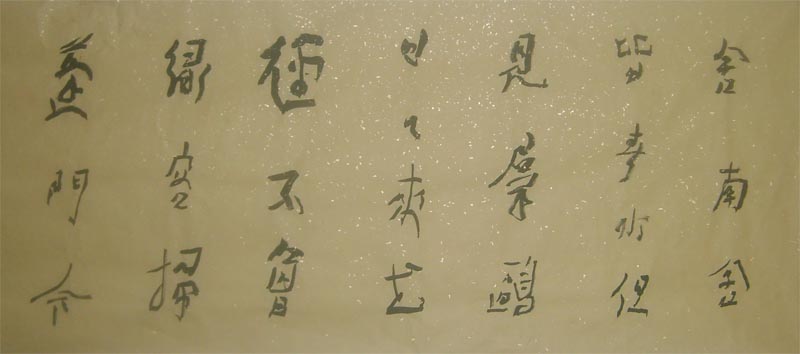 舍南舍
皆春水但
見羣鷗
日々來花
徑不曾
緣客掃
蓬門今